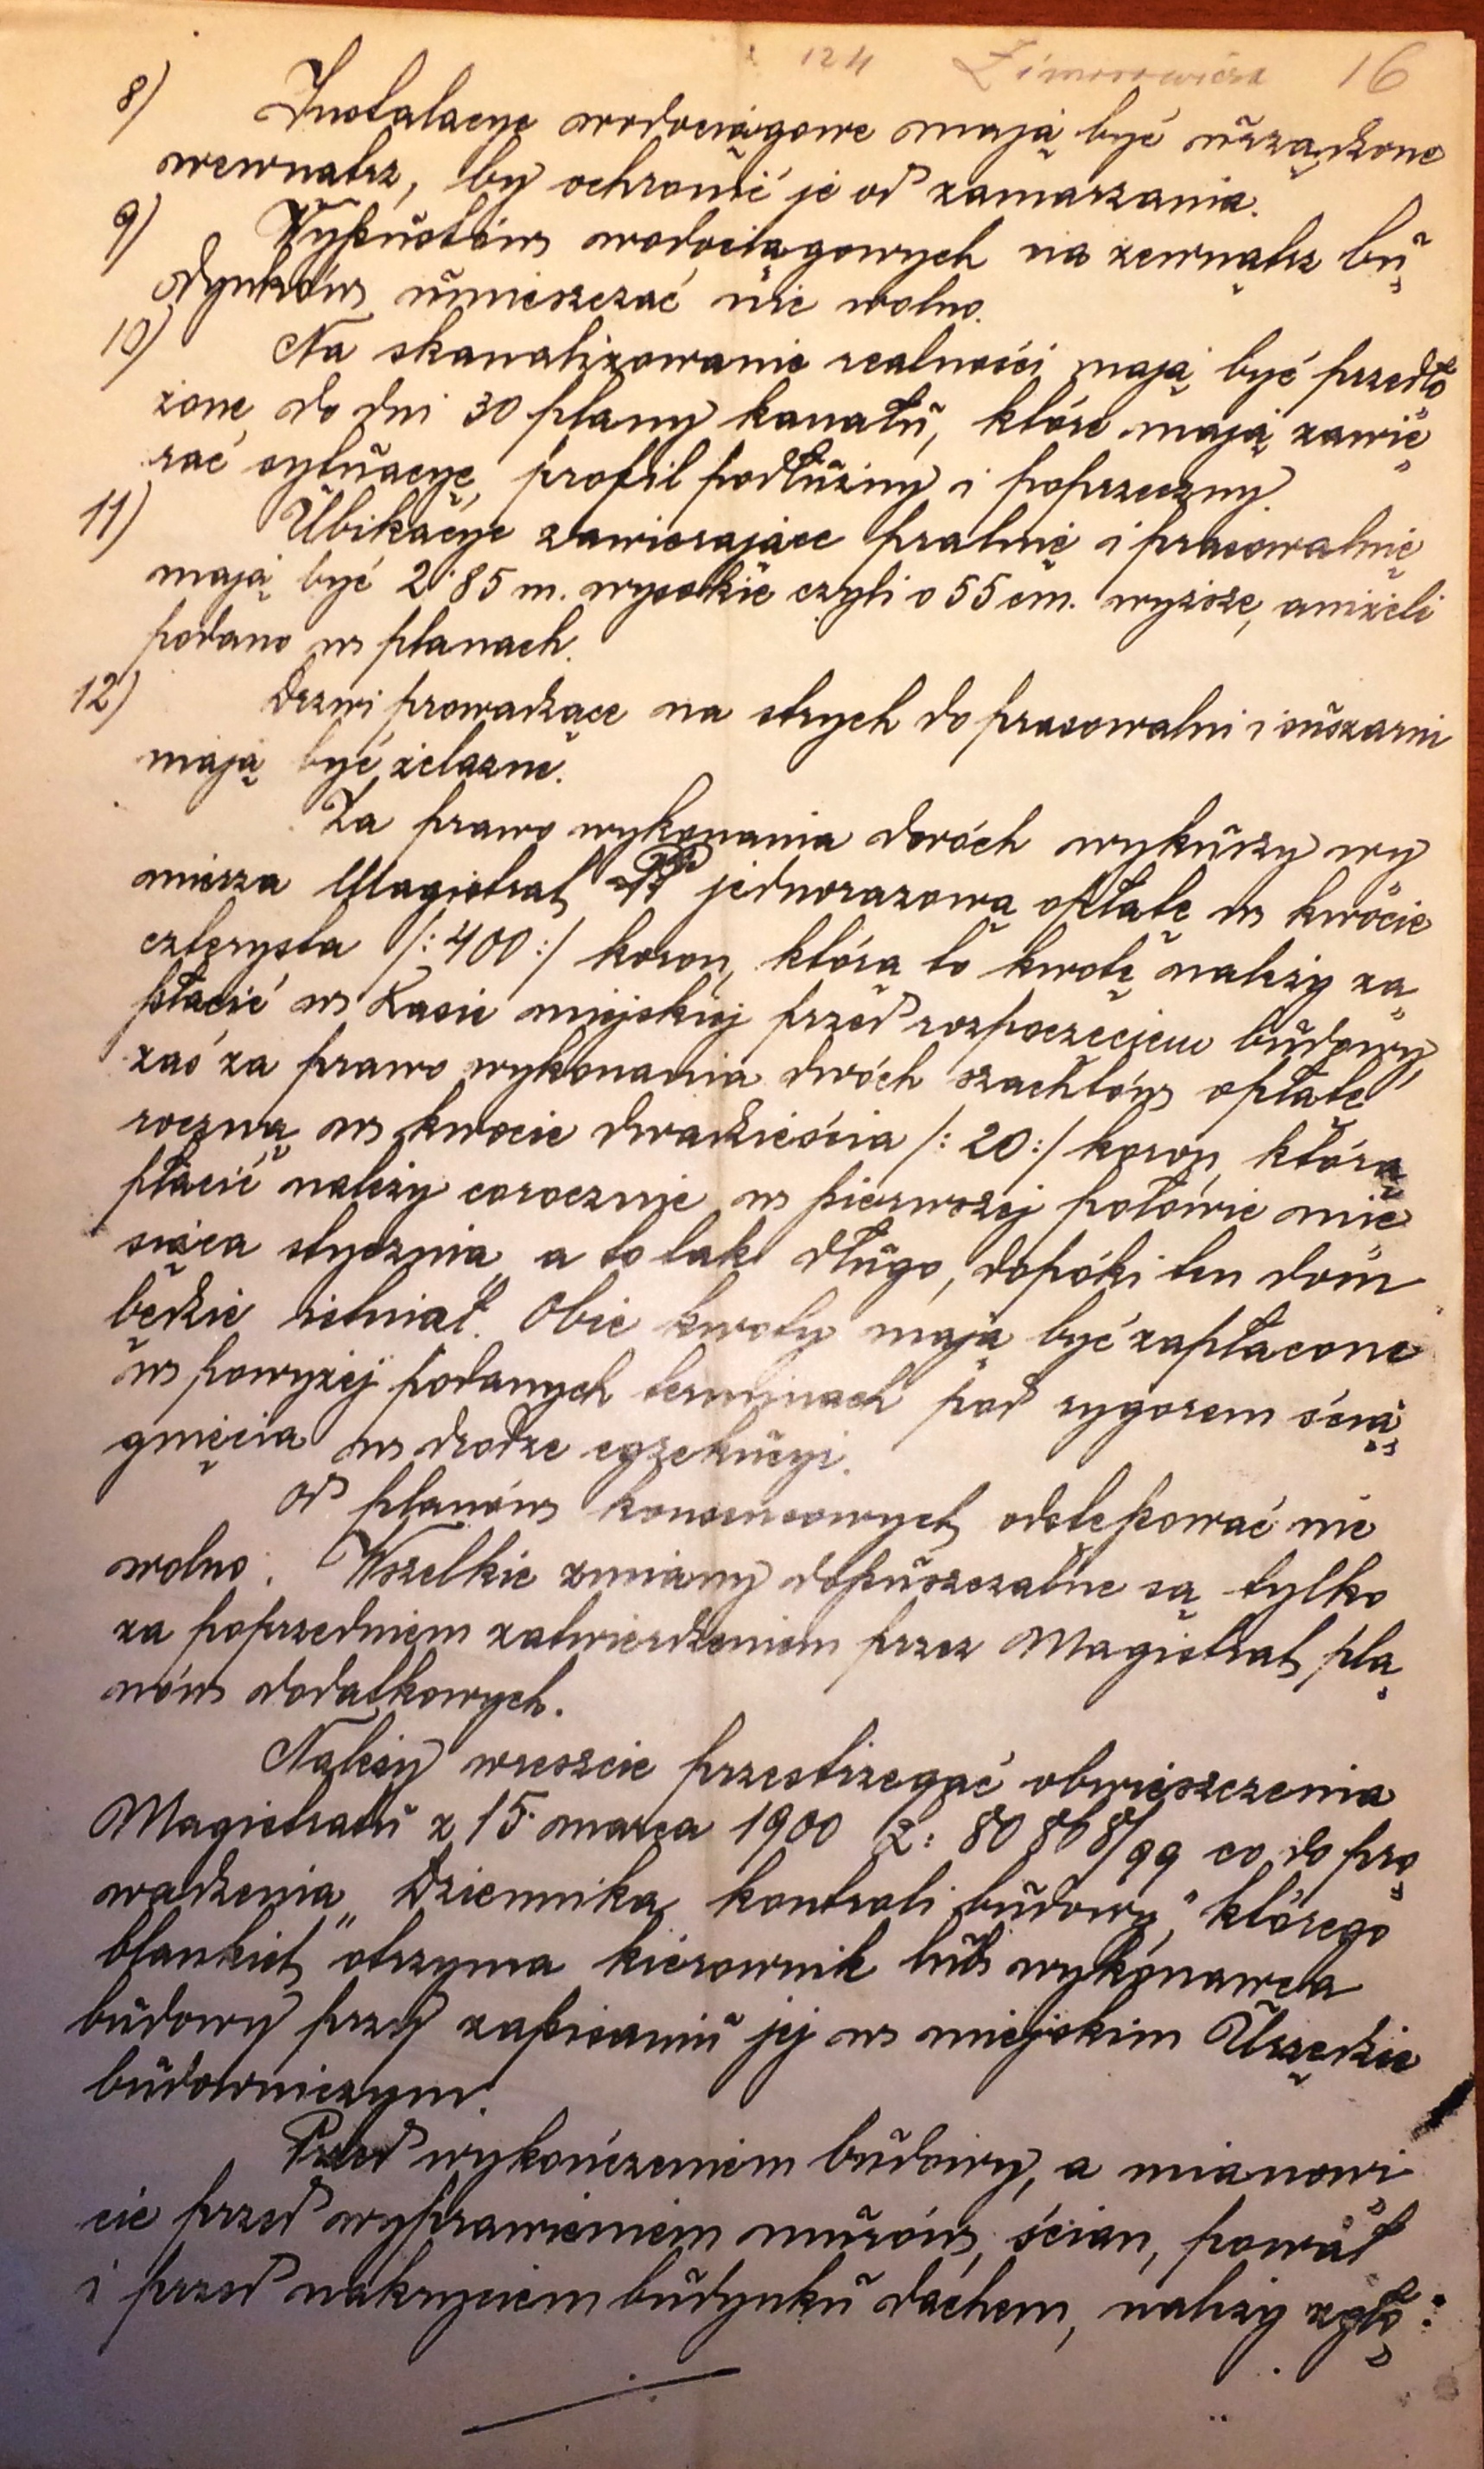 124 Zimorowicza 16
8) Instalacye wodociągowe mają być urządzone
wewnątrz, by ochronić je od zamarzania.
9) Wypustów wodociągowych na zewnątrz bu„
dynków umieszczać nie wolno.
10) Na skanalizowanie realności mają być przedło
żone do dni 30 plany kanału, które mają zawie„
rać sytuacyę, profil podłużny i poprzeczny.
11) Ubikacye zawierające pralnię i prasowalnię
mają być 2·85 m. wysokie czyli o 55 cm. wyższe, aniżeli
podano w planach.
12) Drzwi prowadzące na strych do prasowalni i suszarni
mają być żelazne.
Za prawo wykonania dwóch wykuszy wy
mierza Magistrat jednorazową opłatę w kwocie
czterysta /:400:/ koron, którą to kwotę należy za„
płacić w Kasie miejskiej przed rozpoczęciem budowy,
zaś za prawo wykonania dwóch szachtów opłatę
roczną w kwocie dwadzieścia /:20:/ koron, którą
płacić należy corocznie w pierwszej połowie mie
siąca stycznia, a to tak długo, dopóki ten dom
będzie istniał. Obie kwoty mają być zapłacone
w powyżej podanych terminach pod rygorem ścią„
gnięcia w drodze egzekucyi.
Od planów konsensowych odstępować nie
wolno. Wszelkie zmiany dopuszczalne są tylko
za poprzedniem zatwierdzeniem przez Magistrat pla„
nów dodatkowych.
Należy wreszcie przestrzegać obwieszczenia
Magistratu z 15. marca 1900 L: 80868/99 co do pro„
wadzenia „Dziennika kontroli budowy," którego
blankiet otrzyma kierownik lub wykonawca
budowy przy zapisaniu jej w miejskim Urzędzie
budowniczym.
Przed wykończeniem budowy, a mianowi
cie przed wyprawieniem murów, ścian, pował
i przed nakryciem budynku dachem, należy zgło„